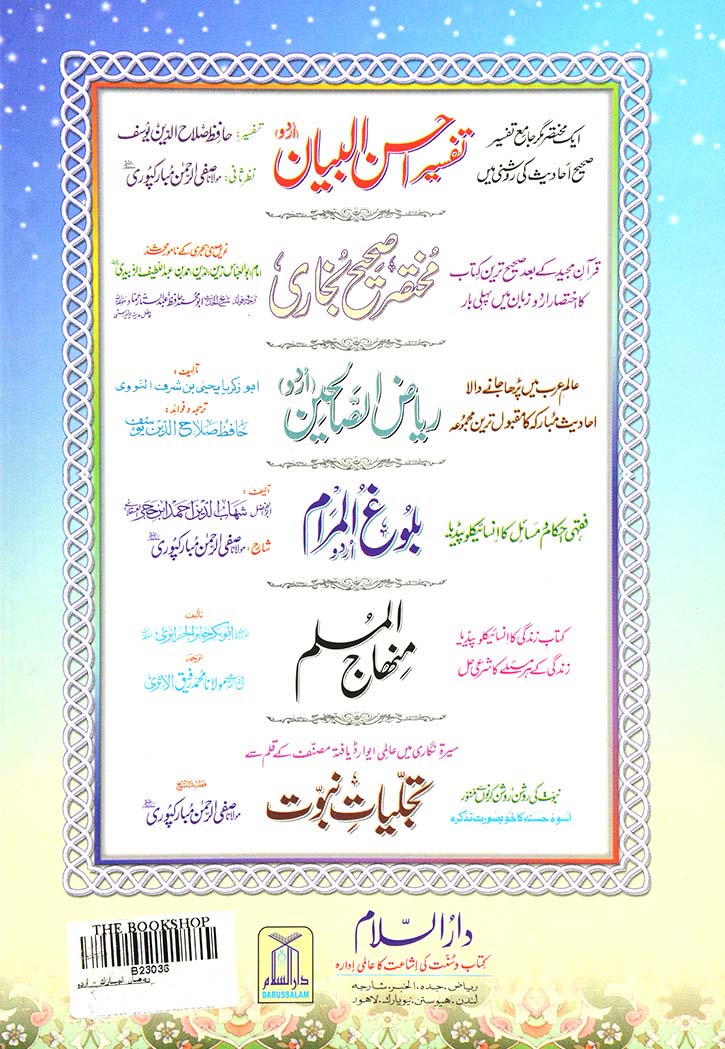 ایک مختصر مگر جامع تفسیر
صحیح احادیث کی روشنی میں
تفسیر احسن البیان (اردو)
تفسیر: حافظ صلاح الدین یوسف
نظر ثانی: مولانا صفی الرحمٰن مبارکپوری
قرآن مجید کے بعد صحیح ترین کتاب
کا اختصار اردو زبان میں پہلی بار
مختصر صحیح بخاری
نویں صدی ہجری کے نامور محدث
امام ابوالعباس زین الدین احمد بن عبداللطیف الزبیدی
عالم عرب میں پڑھا جانے والا
احادیث مبارکہ کا مقبول ترین مجموعہ
ریاض الصالحین (اردو)
تالیف:
ابو زکریا یحییٰ بن شرف النووی
ترجمہ و فوائد:
حافظ صلاح الدین یوسف
فقہی احکام و مسائل کا انسائیکلوپیڈیا
بلوغ المرام
اردو
تالیف:
ابوالفضل شہاب الدین احمد ابن حجر
شارح: مولانا صفی الرحمٰن مبارکپوری
کتاب زندگی کا انسائیکلوپیڈیا
زندگی کے ہر مسئلے کا شرعی حل
منهاج المسلم
تالیف
ابوبکر جابر الجزائری
ترجمہ
مولانا محمد رفیق الاثری
سیرۃ نگاری میں عالمی ایوارڈ یافتہ مصنف کے قلم سے
نبوت کی روشن روشن کرنوں سے منور
اسوۂ حسنہ کا خوبصورت تذکرہ
تجلیات نبوت
مولانا صفی الرحمٰن مبارکپوری
دارالسلام
کتاب و سنت کی اشاعت کا عالمی ادارہ
ریاض. جدہ. الخبر. شارجہ
لندن. ھیوسٹن. نیویارک. لاہور
دارالسلام
DARUSSALAM
THE BOOKSHOP
B23036